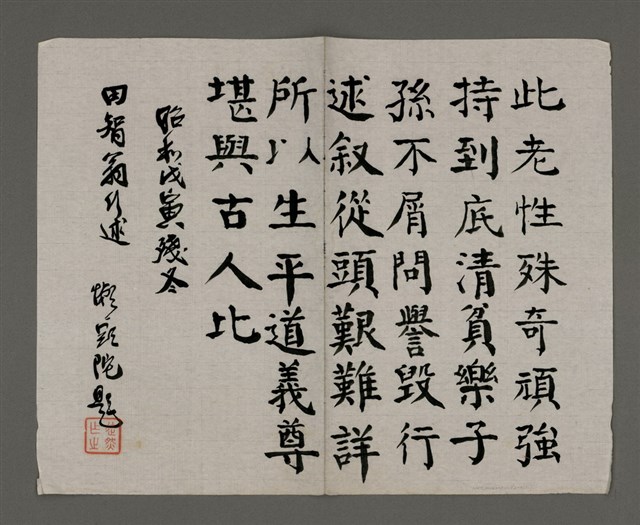 此老性殊奇頑強
持到底清貧樂子
孫不屑問譽毀行
述叙從頭艱難詳
所以生平道義尊
堪與古人比
昭和戊寅殘冬
田智翁行述
懶頭陀題